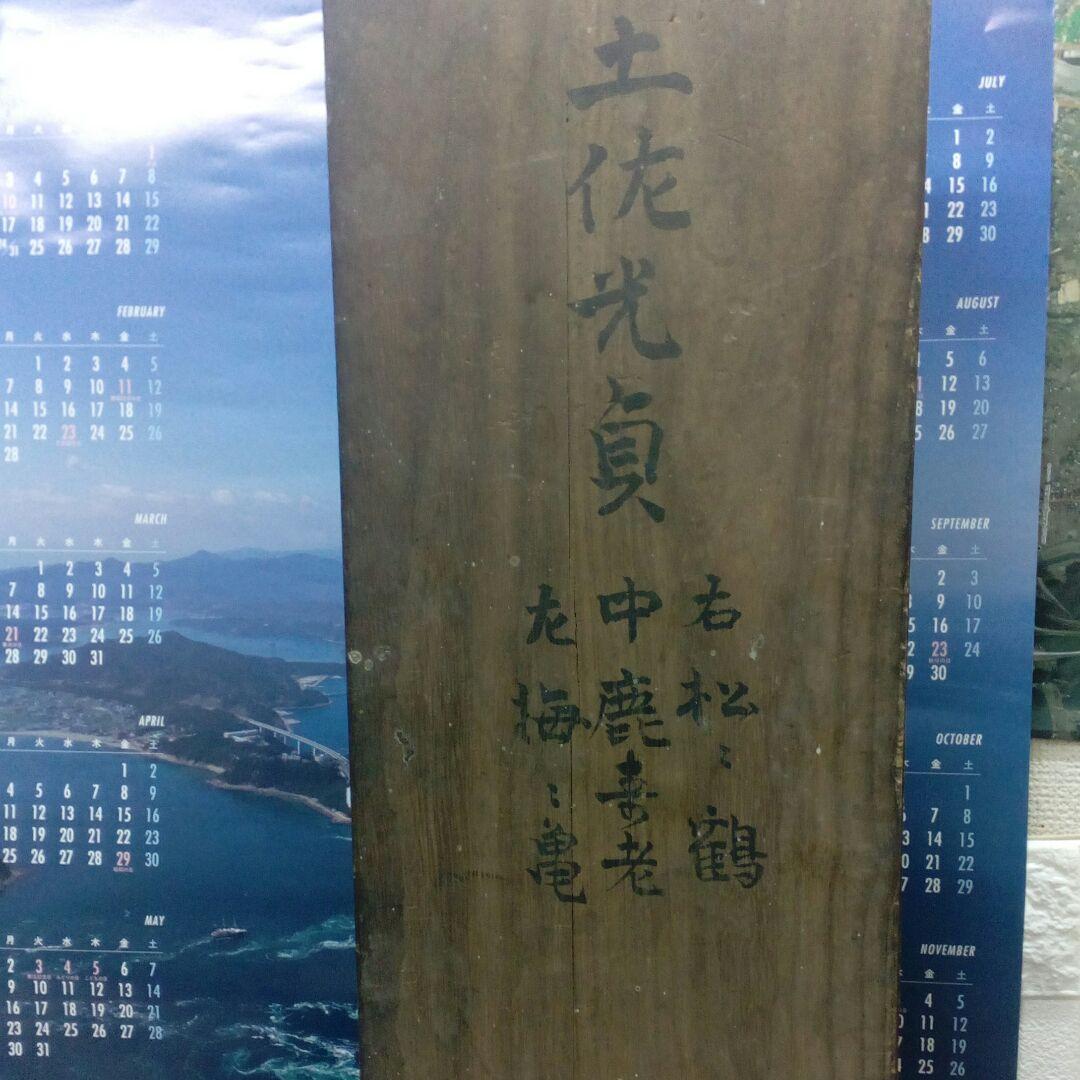 土佐光貞
右松ニ鶴
中鹿寿老
左梅ニ亀
1
3 4 5 6 7 8
10 11 12 13 14 15
17 18 19 20 21 22
24/31 25 26 27 28 29
FEBRUARY
月 火 水 木 金 土
1 2 3 4 5
7 8 9 10 11 12
14 15 16 17 18 19
21 22 23 24 25 26
28
MARCH
月 火 水 木 金 土
1 2 3 4 5
7 8 9 10 11 12
14 15 16 17 18 19
21 22 23 24 25 26
28 29 30 31
APRIL
月 火 水 木 金 土
1 2
4 5 6 7 8 9
11 12 13 14 15 16
18 19 20 21 22 23
25 26 27 28 29 30
MAY
月 火 水 木 金 土
2 3 4 5 6 7
9 10 11 12 13 14
16 17 18 19 20 21
23 24 25 26 27 28
30 31
JULY
金 土
1 2
8 9
15 16
22 23
29 30
AUGUST
金 土
5 6
12 13
19 20
26 27
SEPTEMBER
金 土
2 3
9 10
16 17
23 24
30
OCTOBER
金 土
1
7 8
14 15
21 22
28 29
NOVEMBER
金 土
4 5
11 12
18 19
25 26